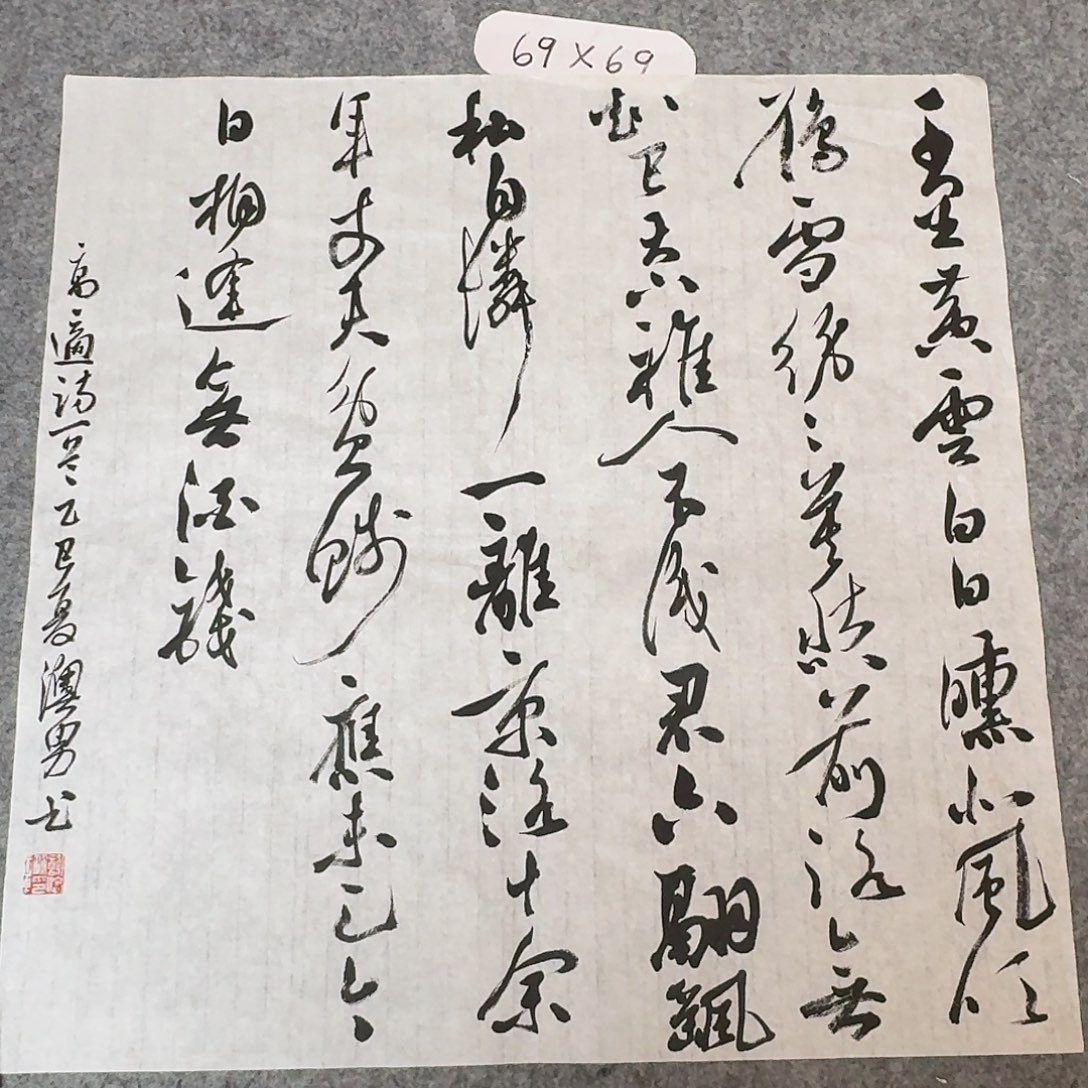 69×69
千里黄雲白日曛北風吹
雁雪紛々莫愁前路無
知己天下誰人不識君六翮飄
私自憐一離京洛十余
年丈夫貧賤應未足今
日相逢無酒錢
高適詩一首乙巳夏澳男书